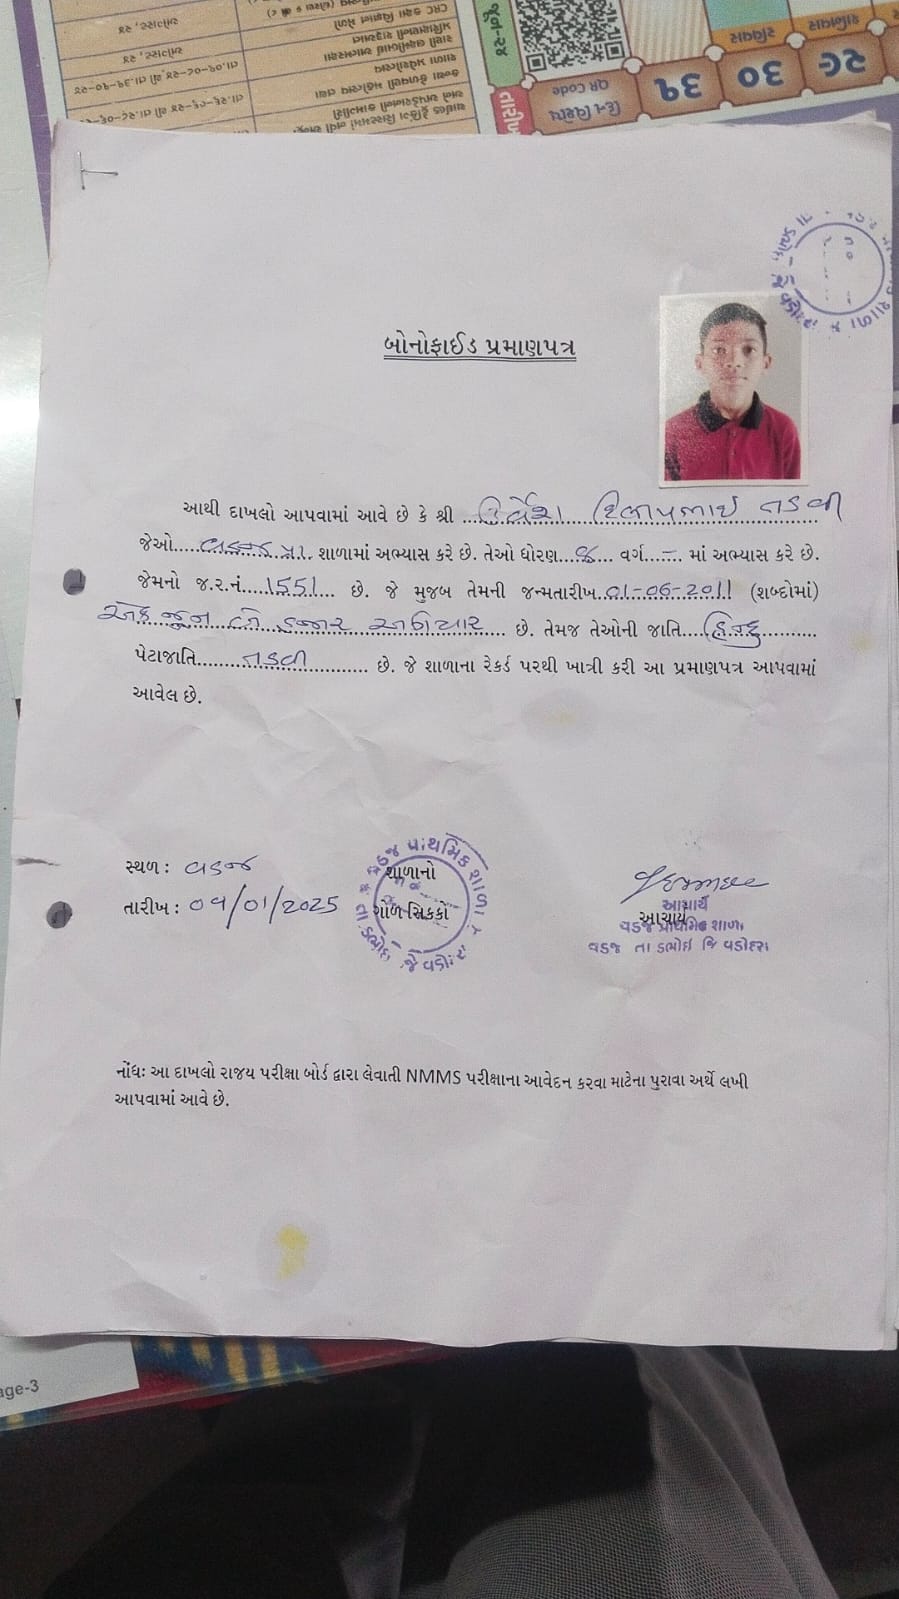 બોનોફાઈડ પ્રમાણપત્ર
આથી દાખલો આપવામાં આવે છે કે શ્રી ... ઉર્વેશ દિલીપભાઇ તડવી
જેઓ....વડજ પ્રા. શાળામાં અભ્યાસ કરે છે. તેઓ ધોરણ..૮... વર્ગ...–.. માં અભ્યાસ કરે છે.
જેમનો જ.ર.નં...1551... છે. જે મુજબ તેમની જન્મતારીખ..01-06-2011 (શબ્દોમાં)
એક જૂન બે હજાર અગિયાર ... છે. તેમજ તેઓની જાતિ....હિન્દુ............
પેટાજાતિ........તડવી............ છે. જે શાળાના રેકર્ડ પરથી ખાત્રી કરી આ પ્રમાણપત્ર આપવામાં
આવેલ છે.
સ્થળ: વડજ
તારીખ: 09/01/2025
શાળાનો
ગોળ સિક્કો
વડજ પ્રાથમિક શાળા
તા ડભોઇ
આચાર્ય
આચાર્ય
વડજ પ્રાથમિક શાળા
વડજ તા ડભોઇ જિ વડોદરા
નોંધઃ આ દાખલો રાજય પરીક્ષા બોર્ડ દ્વારા લેવાતી NMMS પરીક્ષાના આવેદન કરવા માટેના પુરાવા અર્થે લખી
આપવામાં આવે છે.
જૂન-૨૪
તારીખ
QR Code
દિન વિશેષ
૩૧
૩૦
૨૯
રવિવાર
શનિવાર
age-3